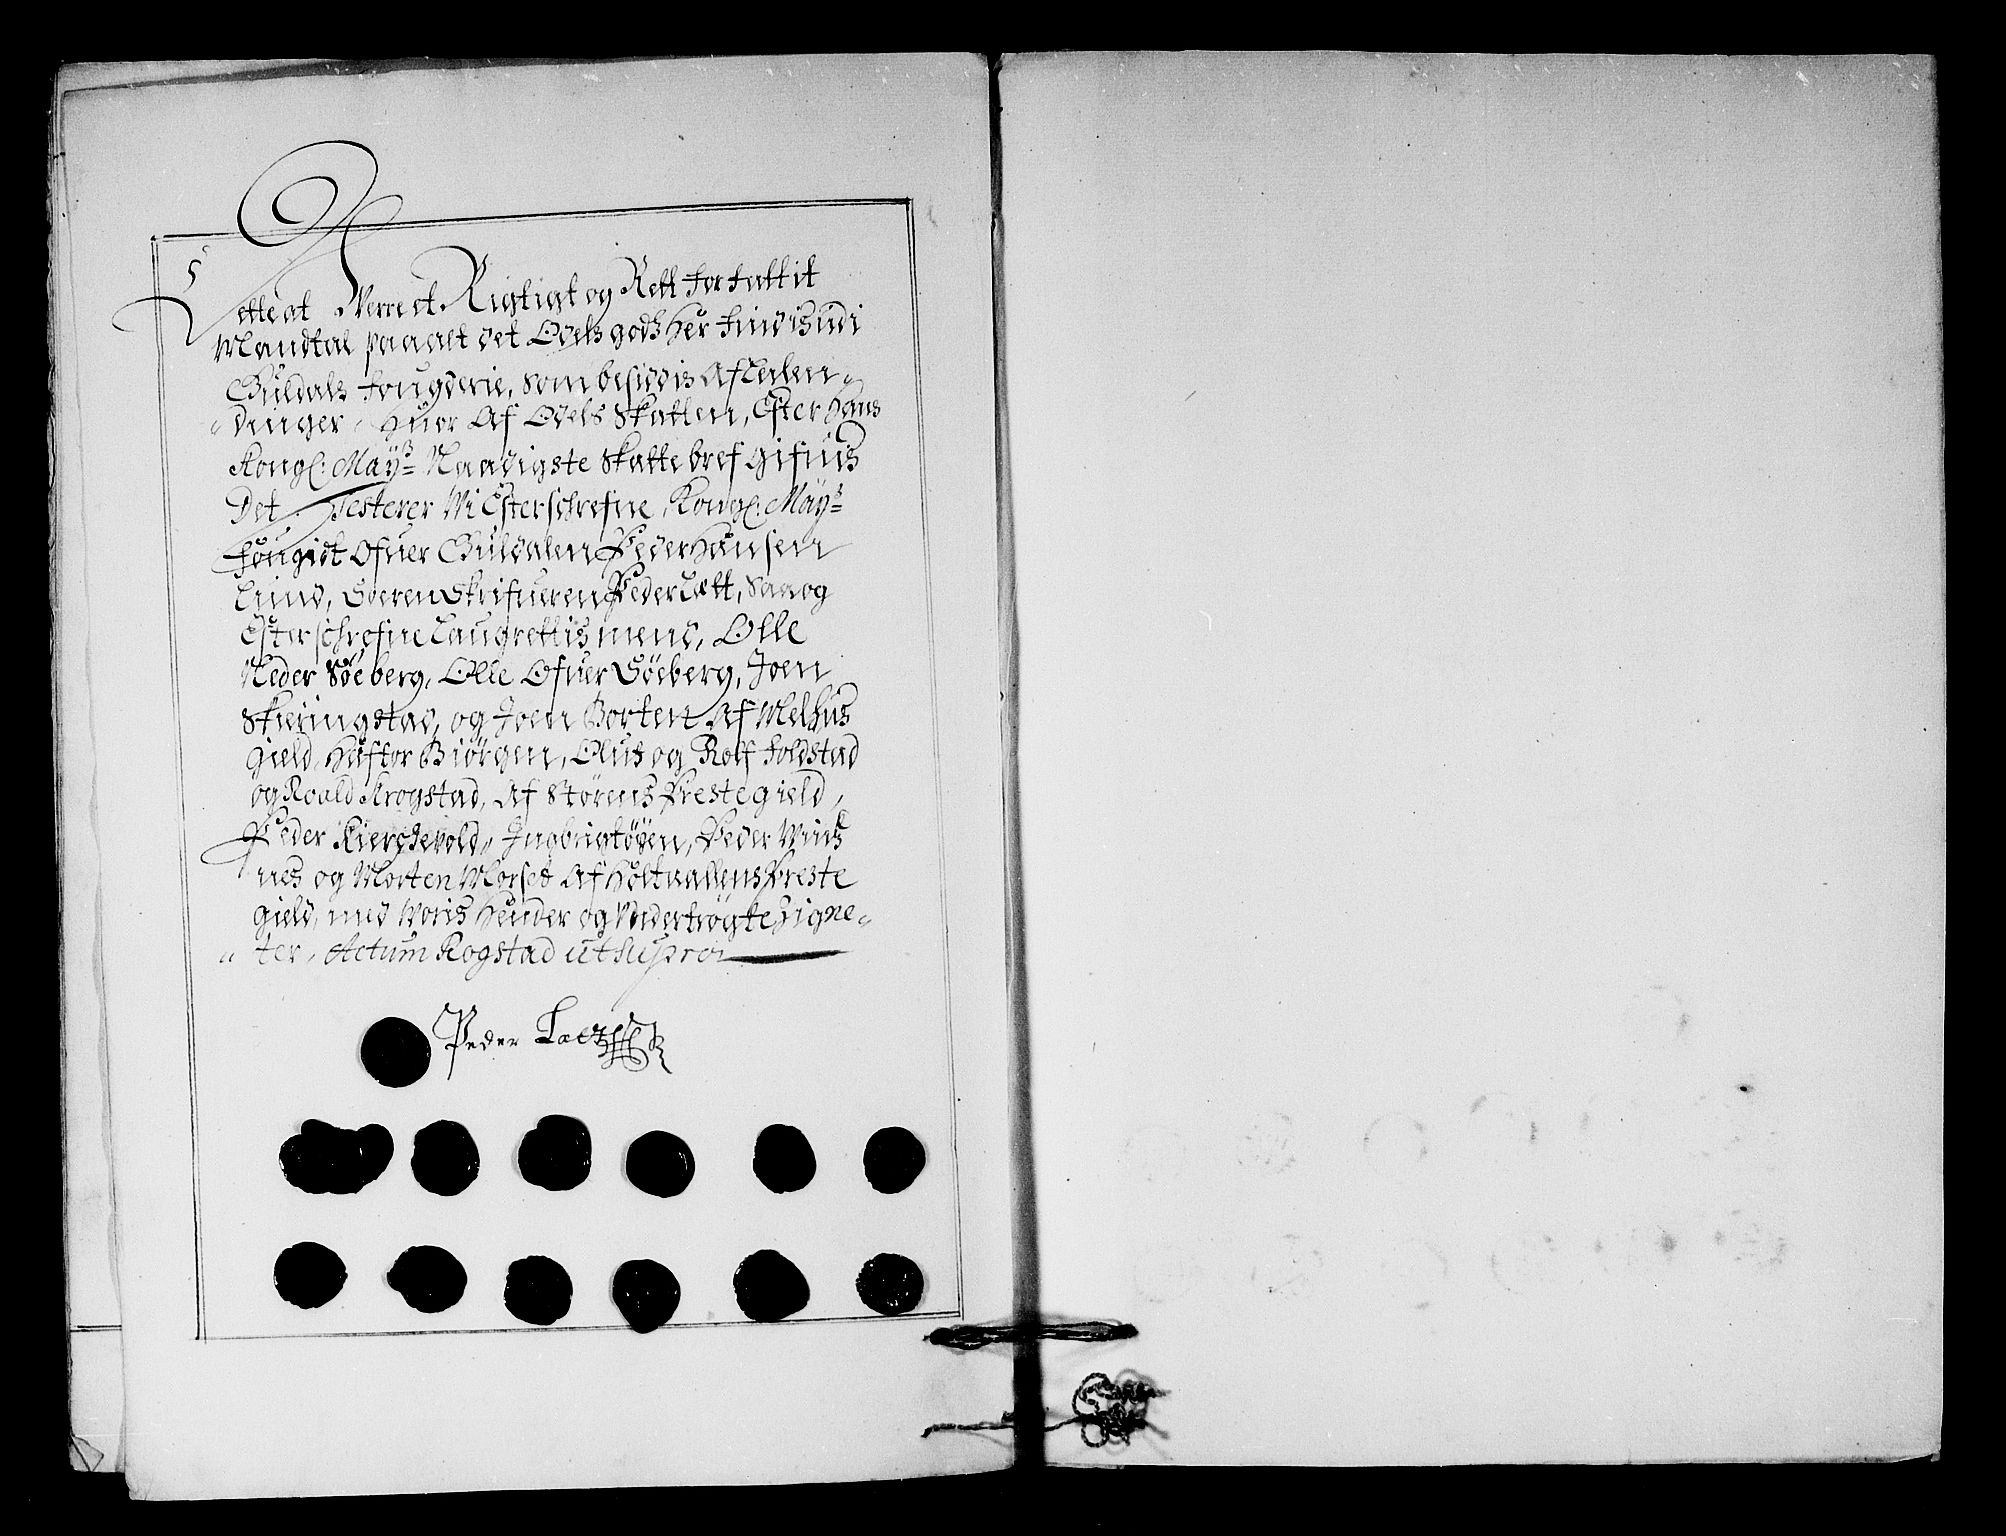 Dette at Werre et Rigtigt og Rett forfattit
Mandtal paa alt det Odels godß Her findis udi
Guldals fougderie, som besiddis Af Lalen-
dinger, Huor Af Odels Skatten, Efter Hans
Kongl: Mayß Naadigste Skattebref gifuis
Det Testerer Wi Efterschrefne, Kongl: Mayß
fougidt Ofuer Guldalen Peder Hansen
Lund, Soeren Skrifueren Peder Lætt, Saa og
Efterschrefne Laugrettis mend, Olle
Neder Söeberg, Olle Ofuer Söeberg, Joen
Skieringstad, og Joen Borten Af Melhus
gield, Haftor Biörgen, Oluf og Rolf foldstad
og Roald Krogstad, Af Störens Prestegield,
Peder Kierchevold, Ingbrigt öyen, Peder Wins
nes og Morten Morset Af Holtaallens Preste
gield, med Woris Hender og Undertrögte Zigne-
ter, Actum Rogstad ut supra
Peder Laetz